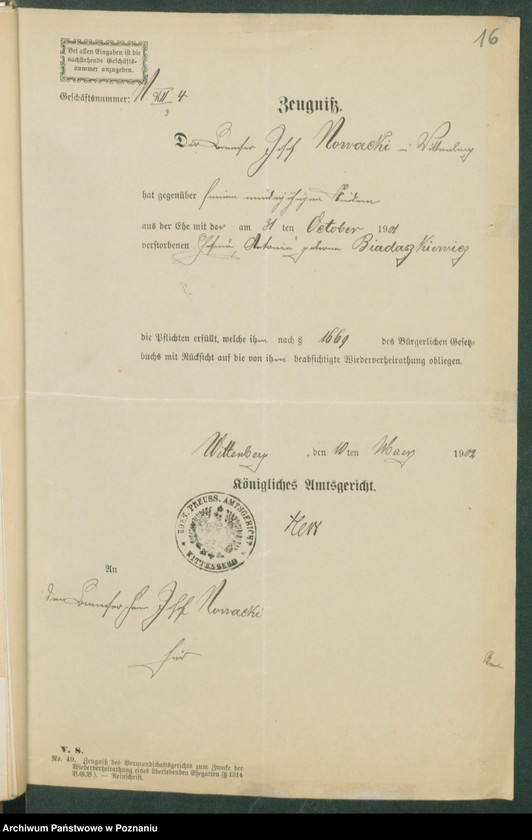 16
Bei allen Eingaben ist die
nachstehende Geschäfts-
nummer anzugeben.
Geschäftsnummer: VIII 4
3
Zeugniß.
Der Joseph Nowacki in Wittenberg
hat gegenüber seinen minderjährigen Kindern
aus der Ehe mit der am 31 ten October 1901
verstorbenen Antonie geborene Biadaszkiewicz
die Pflichten erfüllt, welche ihm nach § 1669 des Bürgerlichen Gesetz-
buchs mit Rücksicht auf die von ihm beabsichtigte Wiederverheirathung obliegen.
Wittenberg, den 10 ten Maerz 1902
Königliches Amtsgericht.
KOEN. PREUSS. AMTSGERICHT
WITTENBERG
An
den Herrn Joseph Nowacki
hier
V. S.
No. 49. Zeugniß des Vormundschaftsgerichts zum Zwecke der
Wiederverheirathung eines überlebenden Ehegatten (§ 1314
B.G.B.). — Reinschrift.
Archiwum Państwowe w Poznaniu